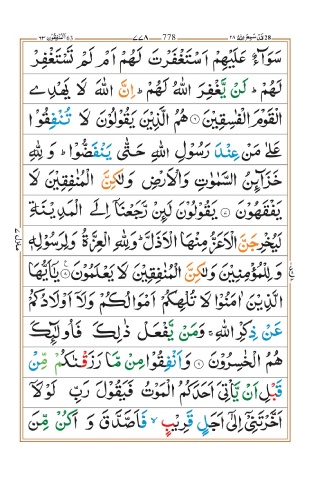 ٢٨ قد سمع الله 28 778 ٧٧٨ المنٰفقون ٦٣
سَوَآءٌ عَلَيْهِمْ اَسْتَغْفَرْتَ لَهُمْ اَمْ لَمْ تَسْتَغْفِرْ
لَهُمْ ؕ لَنْ يَّغْفِرَ اللّٰهُ لَهُمْ ؕ اِنَّ اللّٰهَ لَا يَهْدِى
الْقَوْمَ الْفٰسِقِيْنَ ۶ هُمُ الَّذِيْنَ يَقُوْلُوْنَ لَا تُنْفِقُوْا
عَلٰى مَنْ عِنْدَ رَسُوْلِ اللّٰهِ حَتّٰى يَنْفَضُّوْا ؕ وَ لِلّٰهِ
خَزَآئِنُ السَّمٰوٰتِ وَالْاَرْضِ وَلٰكِنَّ الْمُنٰفِقِيْنَ لَا
يَفْقَهُوْنَ ۷ يَقُوْلُوْنَ لَئِنْ رَّجَعْنَاۤ اِلَى الْمَدِيْنَةِ
لَيُخْرِجَنَّ الْاَعَزُّ مِنْهَا الْاَذَلَّ ؕ وَلِلّٰهِ الْعِزَّةُ وَلِرَسُوْلِهٖ
وَلِلْمُؤْمِنِيْنَ وَلٰكِنَّ الْمُنٰفِقِيْنَ لَا يَعْلَمُوْنَ ۸ يٰۤاَيُّهَا
الَّذِيْنَ اٰمَنُوْا لَا تُلْهِكُمْ اَمْوَالُكُمْ وَلَاۤ اَوْلَادُكُمْ
عَنْ ذِكْرِ اللّٰهِ ۚ وَمَنْ يَّفْعَلْ ذٰلِكَ فَاُولٰٓئِكَ
هُمُ الْخٰسِرُوْنَ ۹ وَاَنْفِقُوْا مِنْ مَّا رَزَقْنٰكُمْ مِّنْ
قَبْلِ اَنْ يَّاْتِىَ اَحَدَكُمُ الْمَوْتُ فَيَقُوْلَ رَبِّ لَوْلَاۤ
اَخَّرْتَنِىْۤ اِلٰٓى اَجَلٍ قَرِيْبٍ ۙ فَاَصَّدَّقَ وَ اَكُنْ مِّنَ